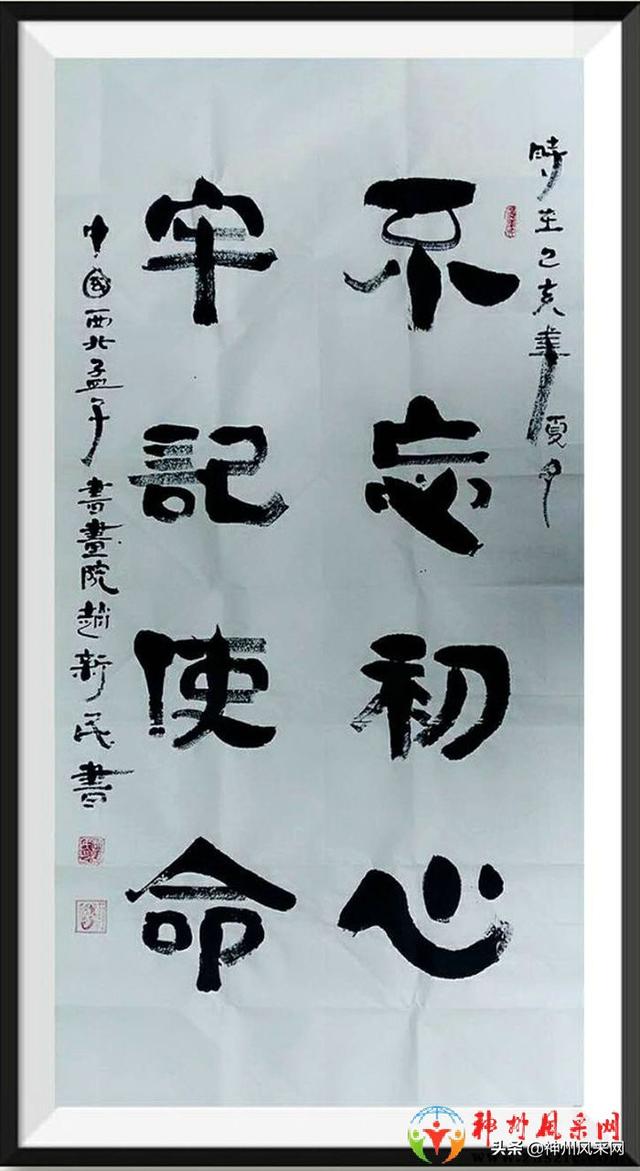 時在己亥年夏月
不忘初心
牢記使命
中國西北孟子書畫院趙新民書
神州风采网
头条@神州风采网